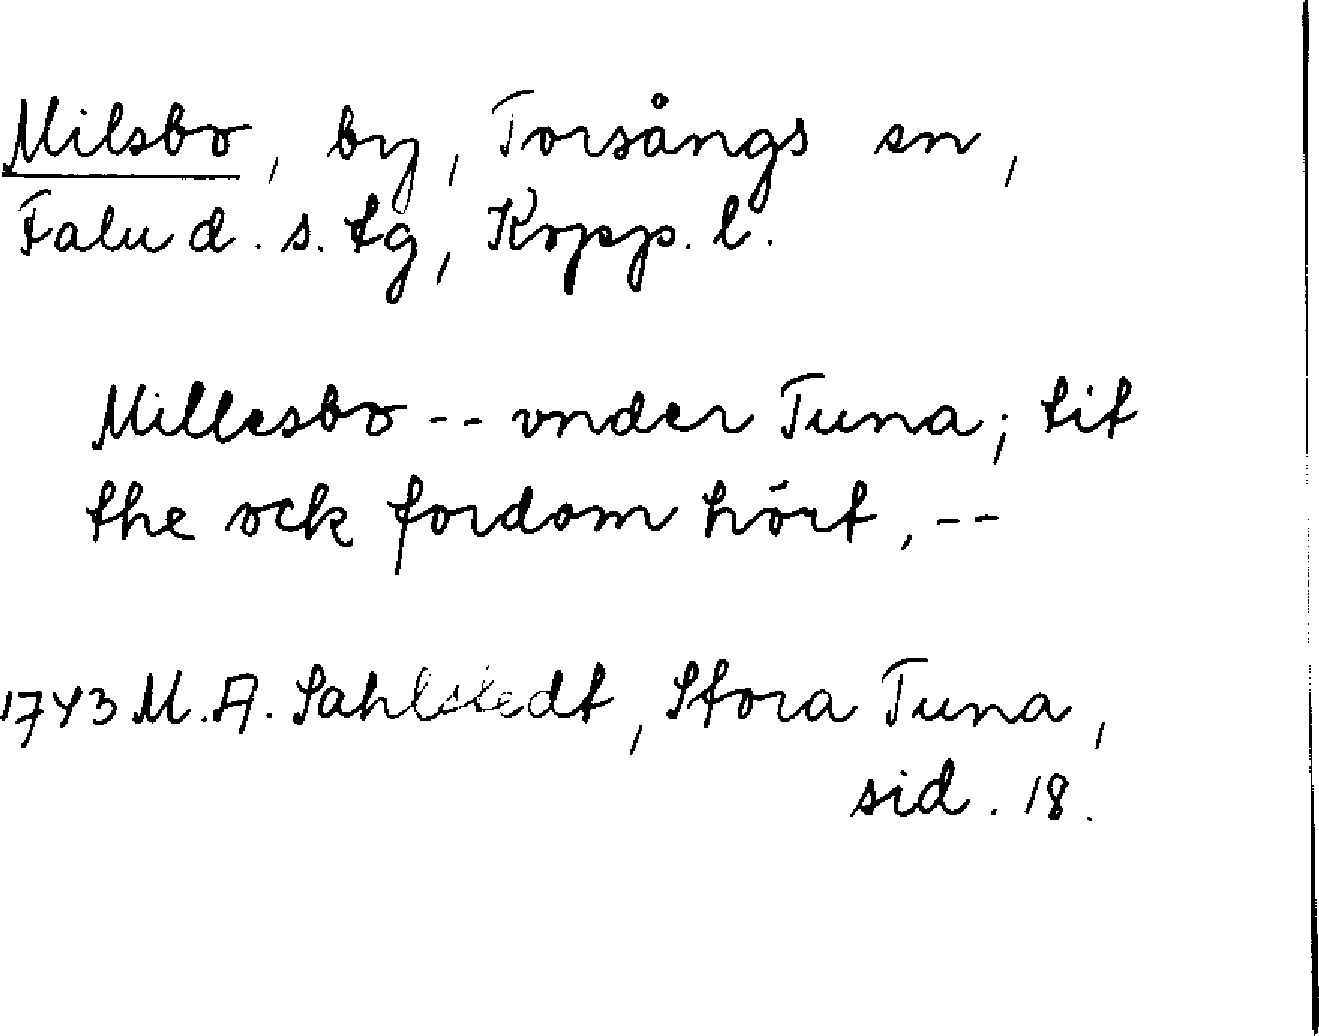 Milsbo, by, Torsångs sn,
Falu d. s. tg, Kopp. l.
Millesbo -- vnder Tuna; tit
the ock fordom hört, --
1743 M. A. Sahlstedt, Stora Tuna,
sid. 18.